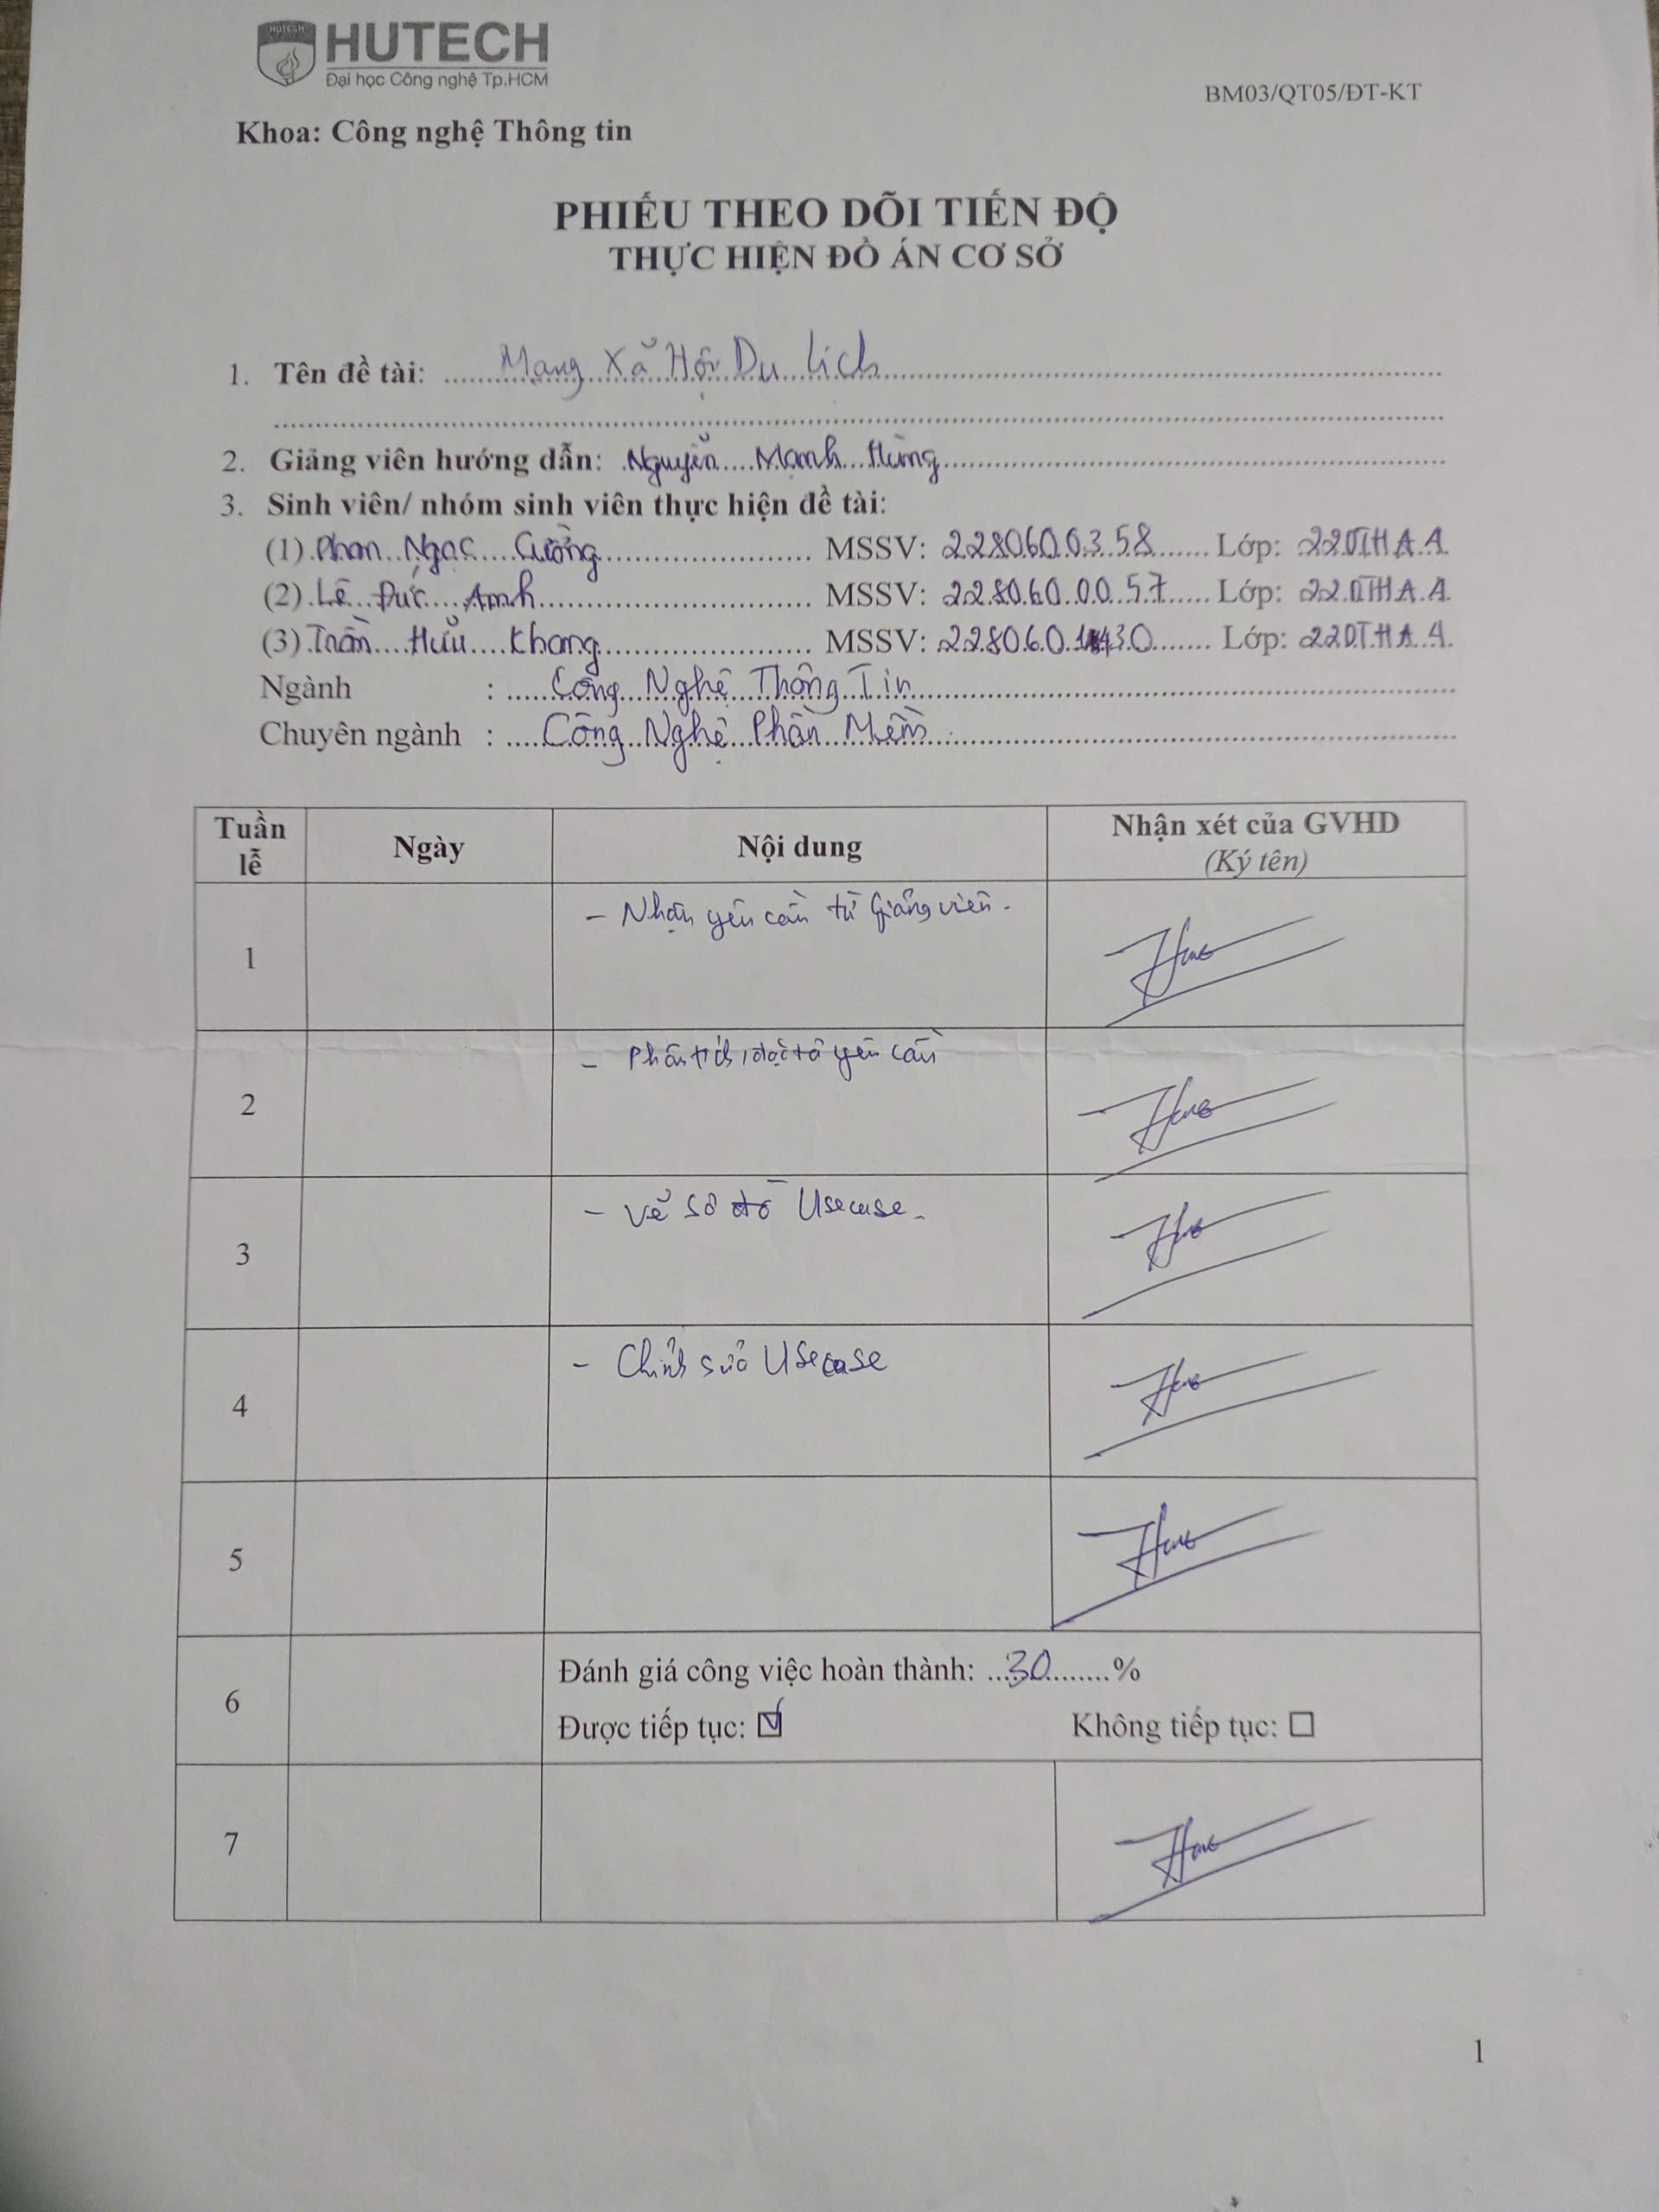 HUTECH
HUTECH
Đại học Công nghệ Tp.HCM
BM03/QT05/ĐT-KT
Khoa: Công nghệ Thông tin
PHIẾU THEO DÕI TIẾN ĐỘ
THỰC HIỆN ĐỒ ÁN CƠ SỞ
1. Tên đề tài: Mạng Xã Hội Du lịch
2. Giảng viên hướng dẫn: Nguyễn Mạnh Hùng
3. Sinh viên/ nhóm sinh viên thực hiện đề tài:
(1) Phan Ngọc Cường MSSV: 2280600358 Lớp: 22DTHA4
(2) Lê Đức Anh MSSV: 2280600057 Lớp: 22DTHA4
(3) Trần Hữu Khang MSSV: Lớp: 22DTHA4
Ngành : Công Nghệ Thông Tin
Chuyên ngành : Công Nghệ Phần Mềm
Tuần lễ Ngày Nội dung Nhận xét của GVHD
(Ký tên)
1 - Nhận yêu cầu từ Giảng viên.
2 - Phân tích, đặc tả yêu cầu
3 - Vẽ sơ đồ Usecase.
4 - Chỉnh sửa Usecase
5
6 Đánh giá công việc hoàn thành: 30 %
Được tiếp tục: ☑ Không tiếp tục: ☐
7
1